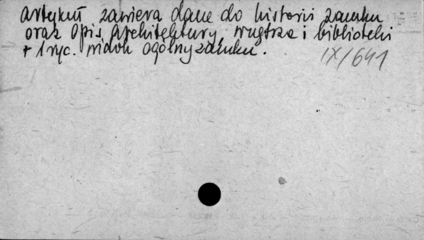 artykuł zawiera dane do historii zamku
oraz opis architektury, wnętrza i biblioteki
+ 1 ryc. widok ogólny zamku.
IX/641